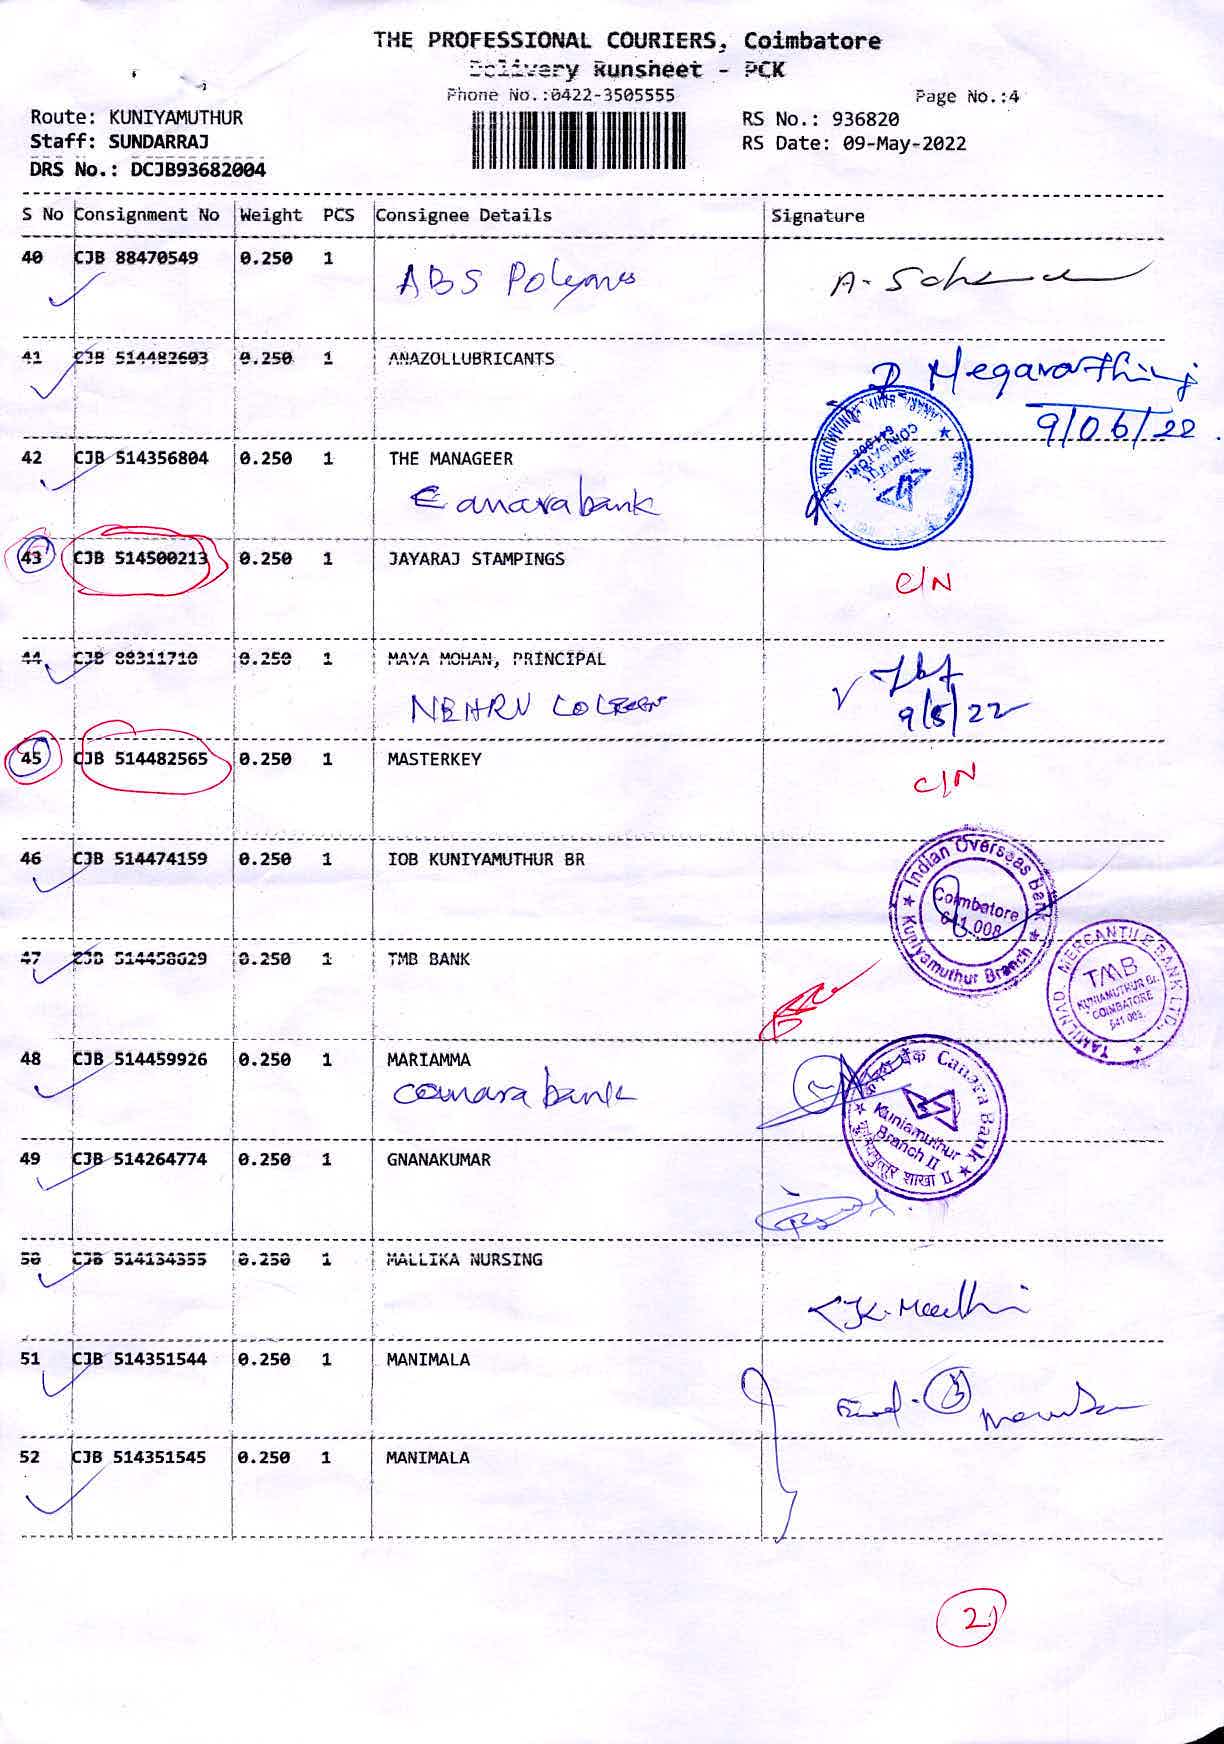 THE PROFESSIONAL COURIERS, Coimbatore
Delivery Runsheet - PCK
Phone No.:0422-3505555
Page No.:4
Route: KUNIYAMUTHUR
RS No.: 936820
Staff: SUNDARRAJ
RS Date: 09-May-2022
DRS No.: DCJB93682004
S No Consignment No Weight PCS Consignee Details Signature
40 CJB 88470549 0.250 1
ABS Polymers
41 CJB 514482603 0.250 1 ANAZOLLUBRICANTS
9/06/22
42 CJB 514356804 0.250 1 THE MANAGEER
Canara bank
43 CJB 514500213 0.250 1 JAYARAJ STAMPINGS
C/N
44 CJB 88311710 0.250 1 MAYA MOHAN, PRINCIPAL
NEHRU
9/5/22
45 CJB 514482565 0.250 1 MASTERKEY
C/N
46 CJB 514474159 0.250 1 IOB KUNIYAMUTHUR BR
Indian Overseas Bank
Coimbatore
641 008
Kuniyamuthur Branch
47 CJB 514458629 0.250 1 TMB BANK
TAMILNAD MERCANTILE BANK LTD.,
TMB
KUNIAMUTHUR Br.
COIMBATORE
641 008.
48 CJB 514459926 0.250 1 MARIAMMA
Canara bank
Canara Bank
Kuniamuthur
Branch II
शाखा II
49 CJB 514264774 0.250 1 GNANAKUMAR
50 CJB 514134355 0.250 1 MALLIKA NURSING
51 CJB 514351544 0.250 1 MANIMALA
52 CJB 514351545 0.250 1 MANIMALA